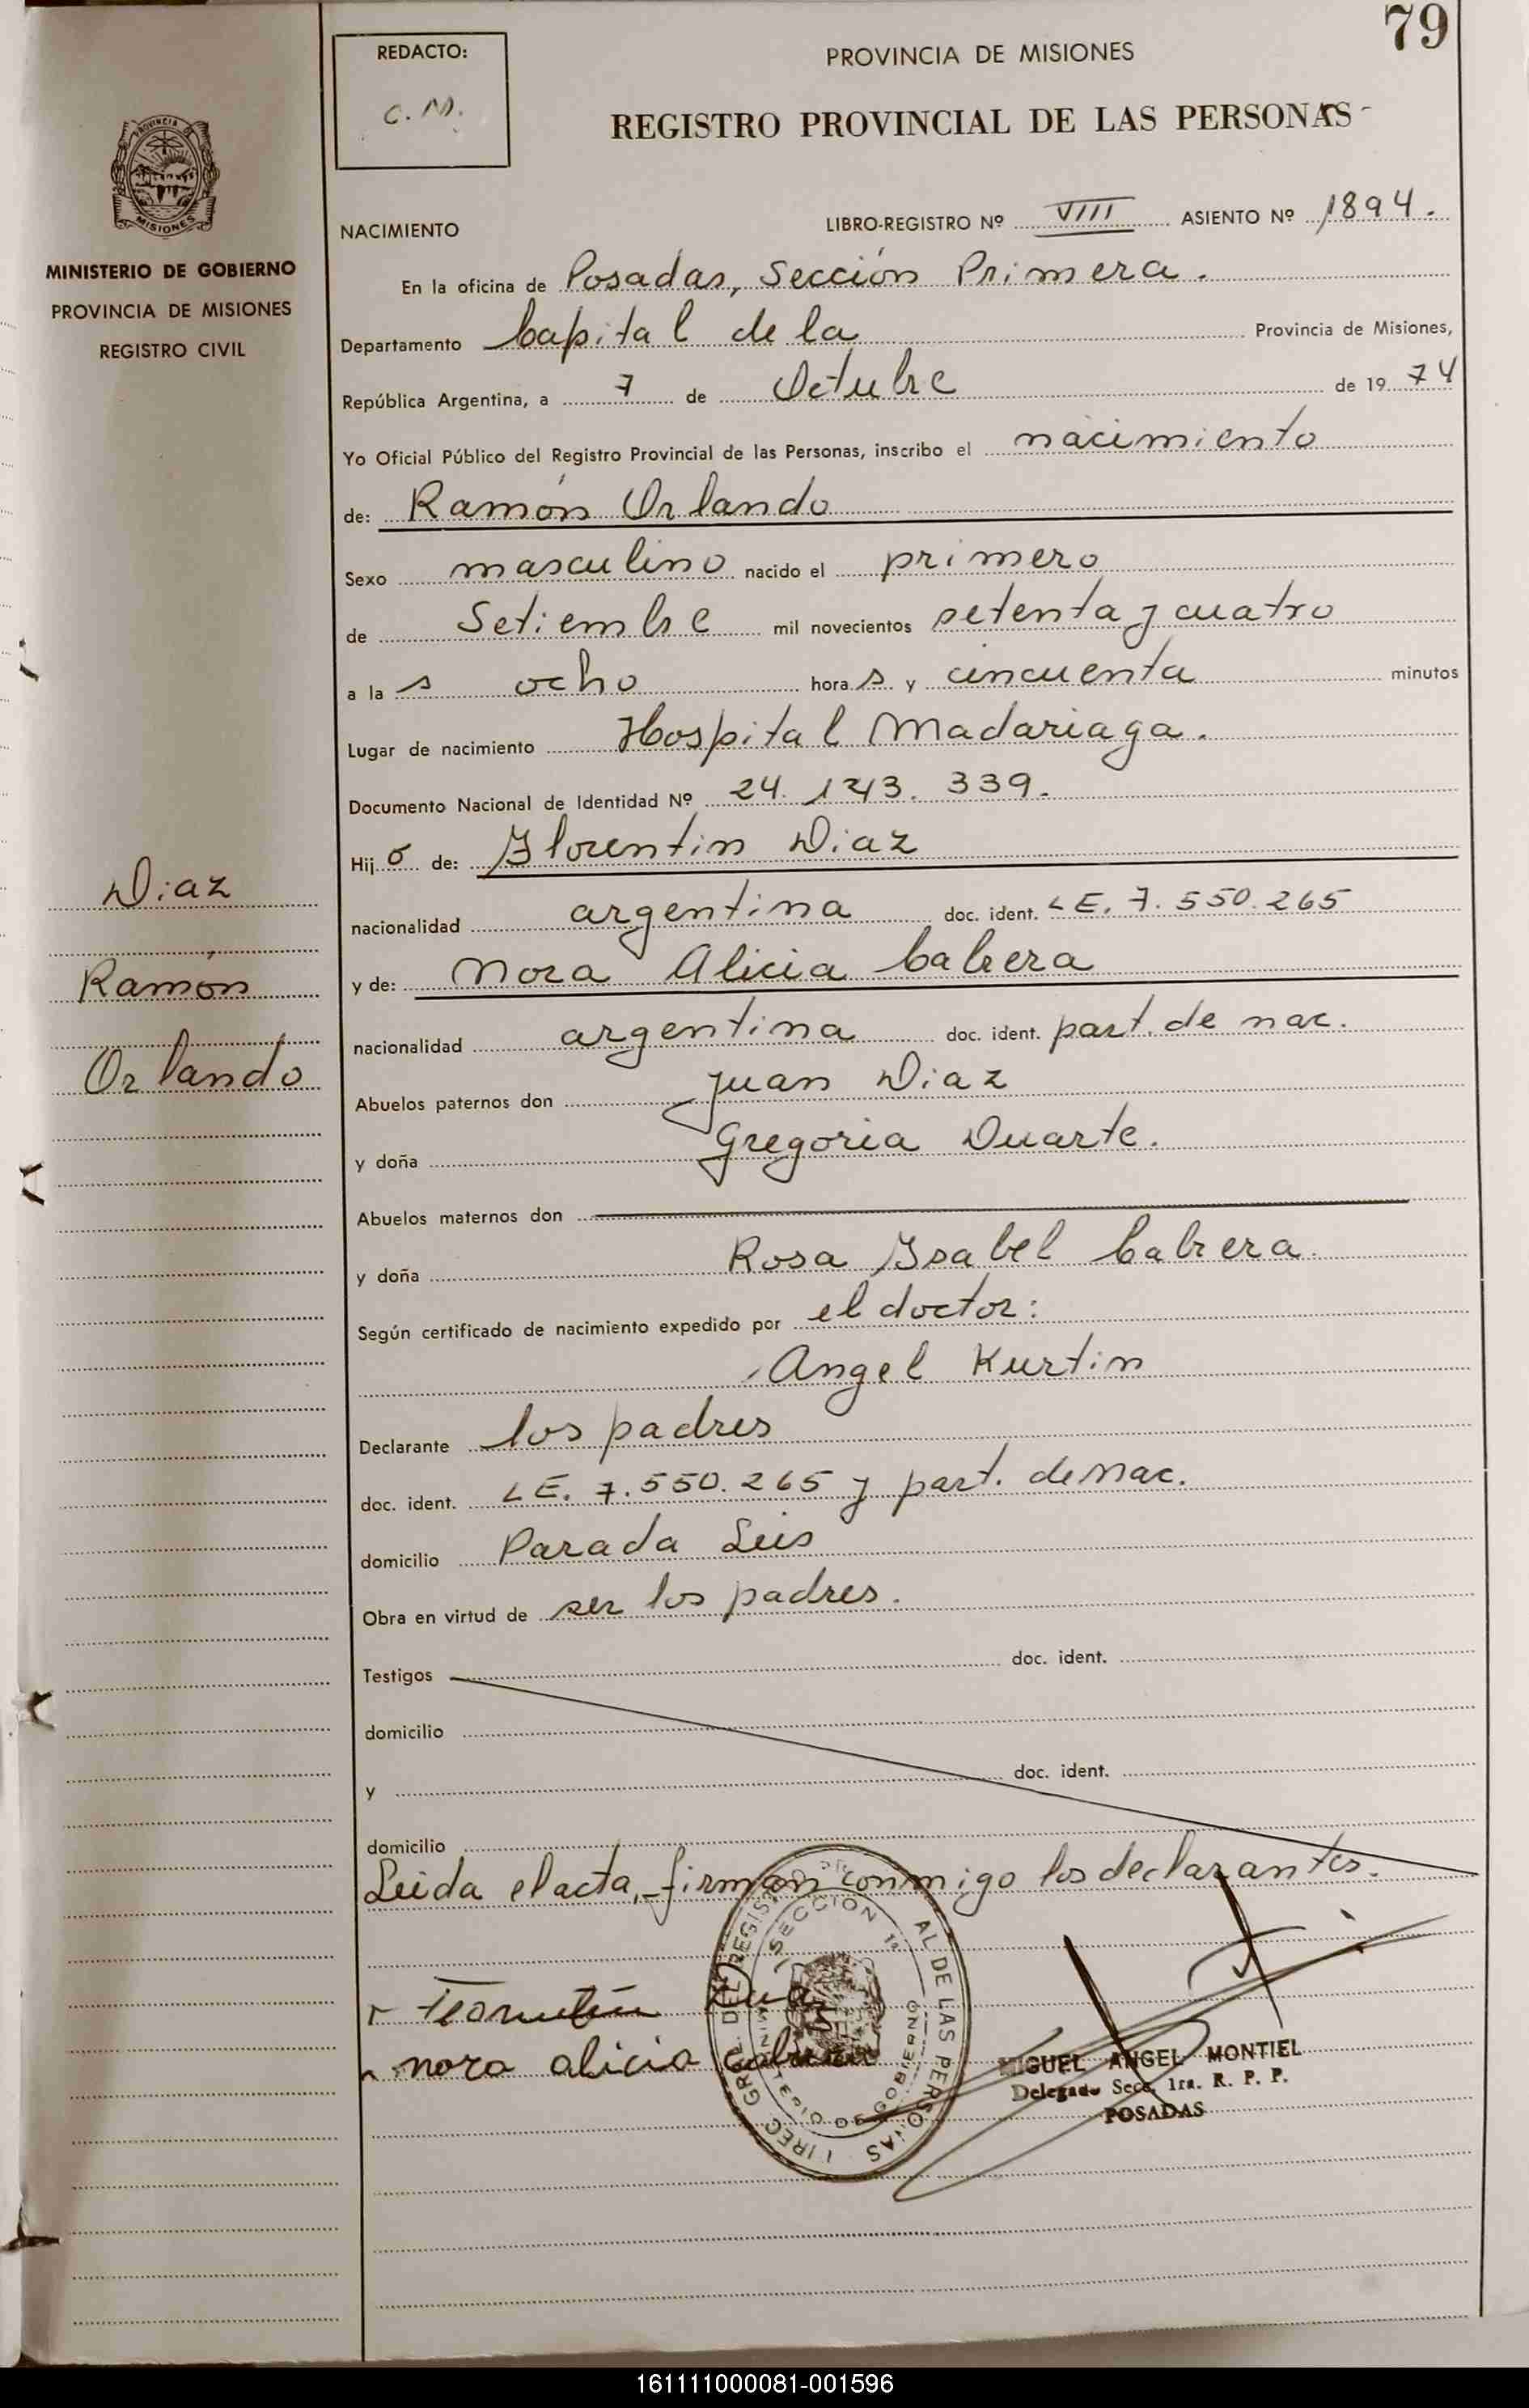 79
REDACTO:
C. M.
PROVINCIA DE MISIONES
REGISTRO PROVINCIAL DE LAS PERSONAS
PROVINCIA DE
MISIONES
MINISTERIO DE GOBIERNO
PROVINCIA DE MISIONES
REGISTRO CIVIL
NACIMIENTO LIBRO-REGISTRO Nº VIII ASIENTO Nº 1894.
En la oficina de Posadas, Sección Primera.
Departamento Capital de la Provincia de Misiones,
República Argentina, a 7 de Octubre de 19 74
Yo Oficial Público del Registro Provincial de las Personas, inscribo el nacimiento
de: Ramón Orlando
Sexo masculino nacido el primero
de Setiembre mil novecientos setenta y cuatro
a la s ocho hora s y cincuenta minutos
Lugar de nacimiento Hospital Madariaga.
Documento Nacional de Identidad Nº 24. 339.
Hij o de: Florentin Diaz
nacionalidad argentina doc. ident. LE. 7.550.265
y de: Nora Alicia Cabrera
nacionalidad argentina doc. ident. part. de nac.
Abuelos paternos don Juan Diaz
y doña Gregoria Duarte.
Abuelos maternos don
y doña Rosa Ysabel Cabrera.
Según certificado de nacimiento expedido por el doctor:
Angel Kurtin
Declarante los padres
doc. ident. LE. 7.550.265 y part. de nac.
domicilio Parada Leis
Obra en virtud de ser los padres.
Testigos doc. ident.
domicilio
y doc. ident.
domicilio
Leida el acta, firman conmigo los declarantes.
Diaz
Ramón
Orlando
Diaz
nora alicia cabrera
SECCION 1ª
MIGUEL ANGEL MONTIEL
Delegado Secc. 1ra. R. P. P.
POSADAS
161111000081-001596